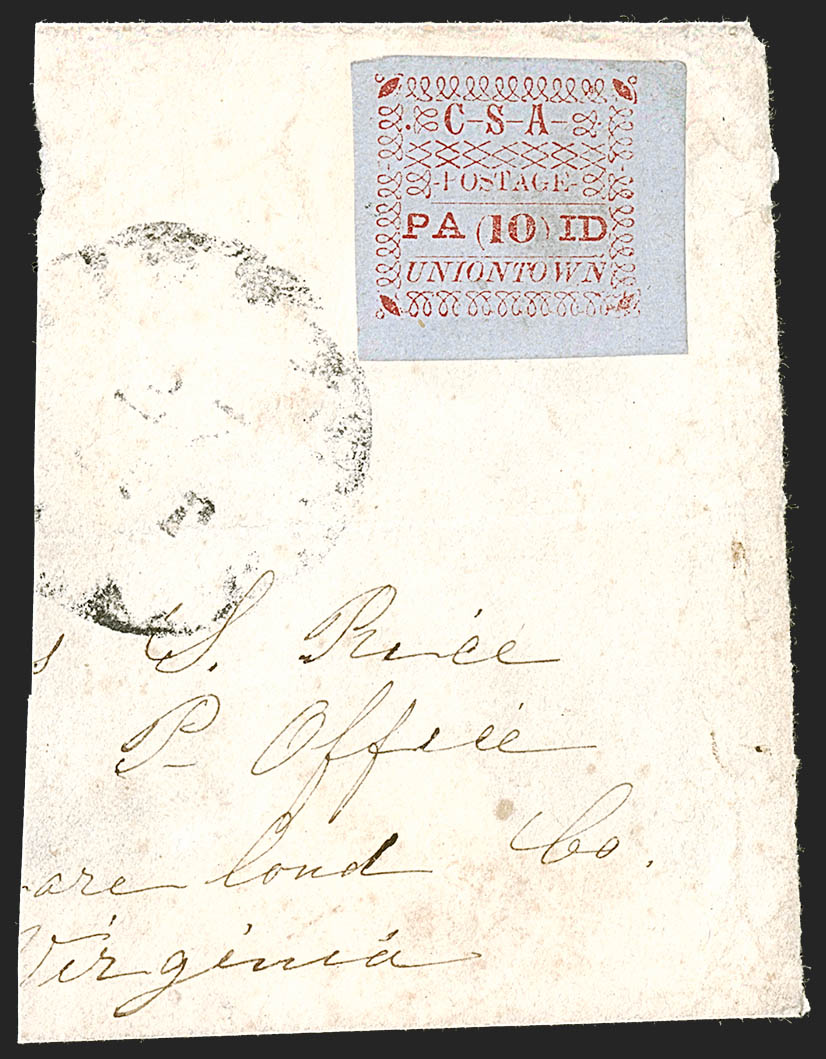 C-S-A-
-POSTAGE-
PA (10) ID
UNIONTOWN
s S. Price
P Office
are loud Co.
Virginia